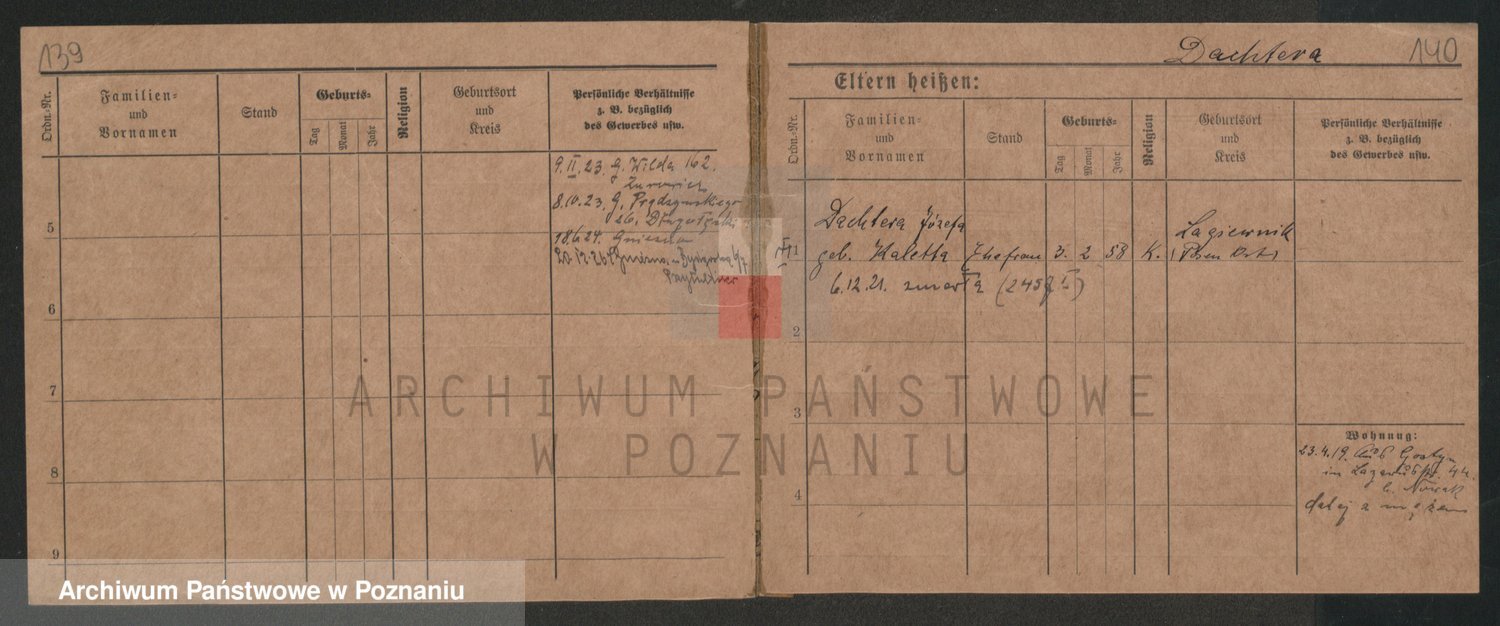 139
Ordn.-Nr.
Familien-
und
Vornamen
Stand
Geburts-
Tag
Monat
Jahr
Religion
Geburtsort
und
Kreis
Persönliche Verhältnisse
z. B. bezüglich
des Gewerbes usw.
9.II.23. G. Wilda 162.
8.IV.23. G. Prądzyńskiego
26.
18.6.24. Gniezno
20.12.26
5
6
7
8
9
Dachtera 140
Eltern heißen:
Ordn.-Nr.
Familien-
und
Vornamen
Stand
Geburts-
Tag
Monat
Jahr
Religion
Geburtsort
und
Kreis
Persönliche Verhältnisse
z. B. bezüglich
des Gewerbes usw.
Dachtera Józefa
Lagiewnik
1 geb. Kaletta Ehefrau 3. 2 58 K. (Posen Ost)
6.12.21. zmarła (2457 I)
2
3
4
Wohnung:
23.4.19. Aus Gostyn
im Lazarusstr. 44.
b. Nowak
dalej z mężem
ARCHIWUM PAŃSTWOWE
W POZNANIU
Archiwum Państwowe w Poznaniu